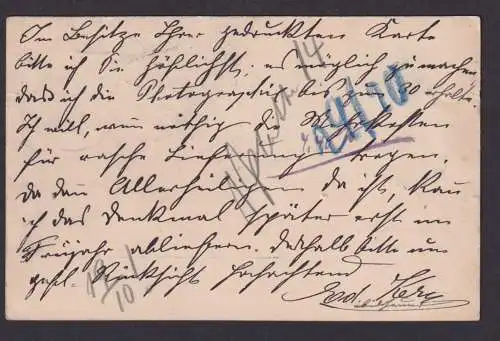 Im Besitze Ihrer gedruckten Karte
bitte ich Sie höflichst, es möglich zu machen
daß ich die Photographie bis zum 20 erhalte.
Ich will, wenn nöthig die
für rasche Lieferung tragen,
da dann Allerheiligen da ist, kann
ich das Denkmal später erst im
Frühjahr abliefern. Deßhalb bitte um
gefl. Rücksicht hochachtend
Ed.
14
24/10
19/10